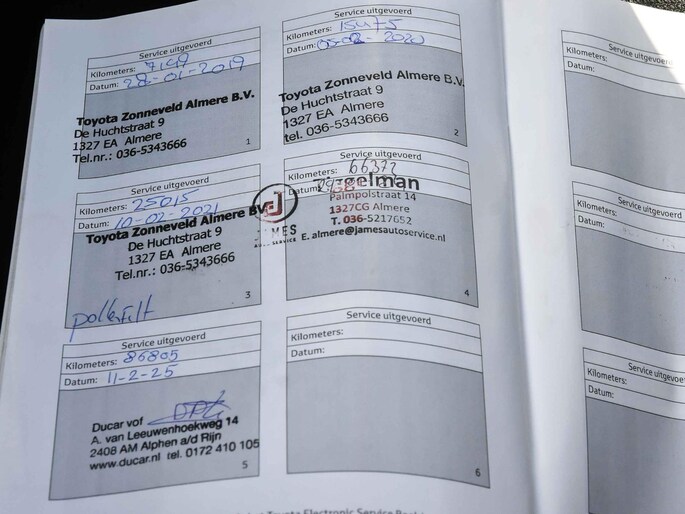 Service uitgevoerd
Kilometers: 7149
Datum: 28-01-2019
Toyota Zonneveld Almere B.V.
De Huchtstraat 9
1327 EA Almere
Tel.nr.: 036-5343666
1
Service uitgevoerd
Kilometers: 15475
Datum: 05-02-2020
Toyota Zonneveld Almere B.V.
De Huchtstraat 9
1327 EA Almere
tel. 036-5343666
2
Service uitgevoerd
Kilometers: 25015
Datum: 10-02-2021
Toyota Zonneveld Almere BV.
De Huchtstraat 9
1327 EA Almere
Tel.nr.: 036-5343666
pollenfilt
3
Service uitgevoerd
Kilometers: 66372
Datum:
Palmpolstraat 14
1327CG Almere
T. 036-5217652
E. almere@jamesautoservice.nl
4
Service uitgevoerd
Kilometers: 86805
Datum: 11-2-25
Ducar vof
A. van Leeuwenhoekweg 14
2408 AM Alphen a/d Rijn
www.ducar.nl tel. 0172 410 105
5
Service uitgevoerd
Kilometers:
Datum:
6
Service uitgevoerd
Kilometers:
Datum:
Service uitgevoe
Kilometers:
Service uitgevoe
Kilometers:
Datum: